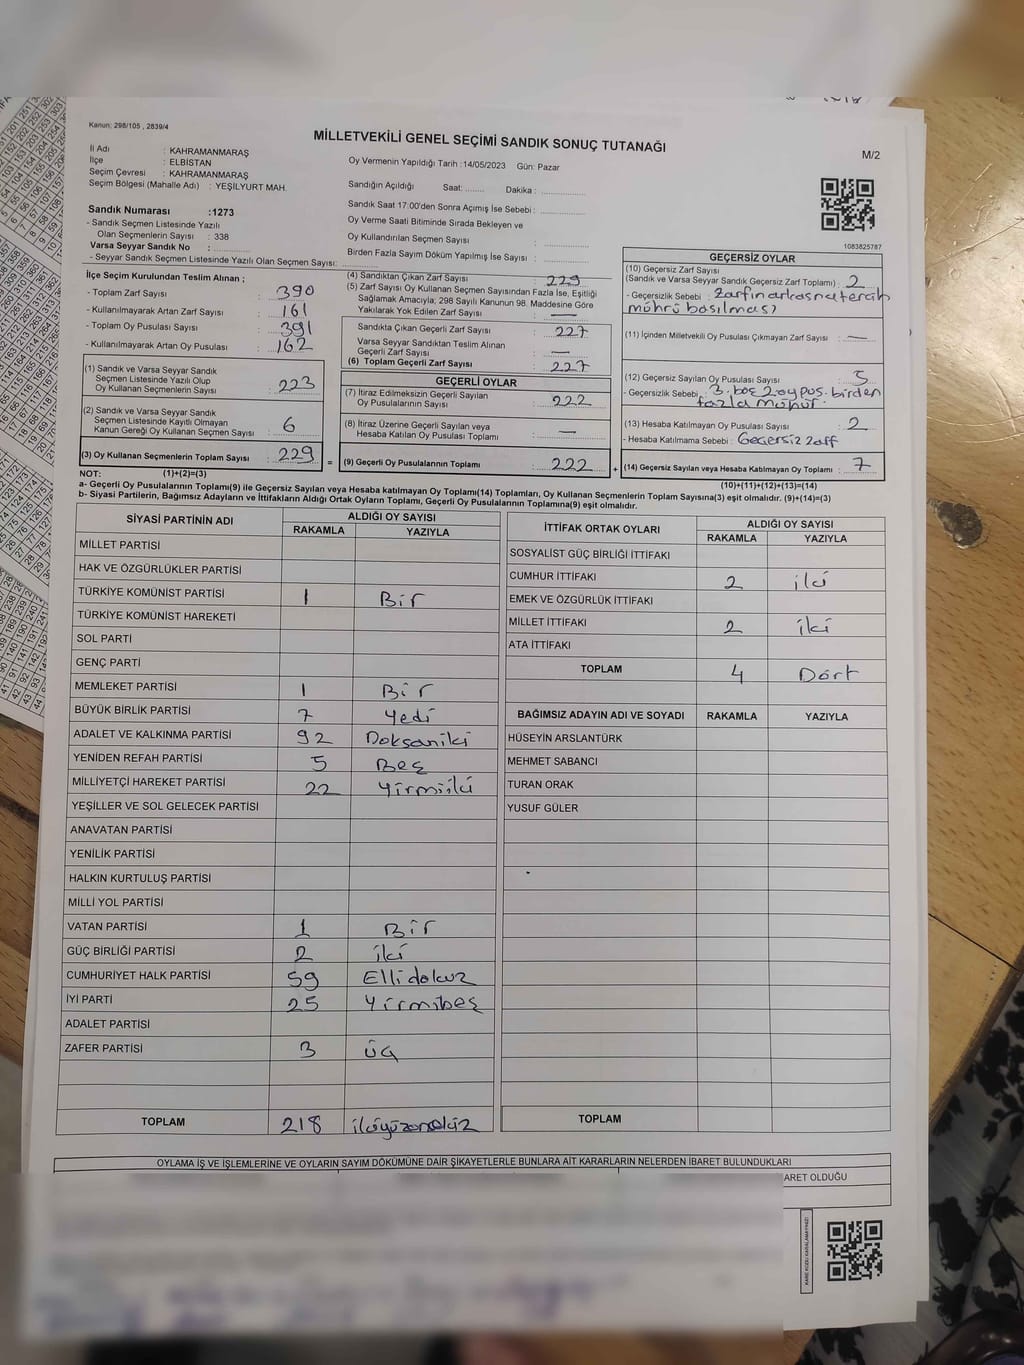 Kanun: 298/105 , 2839/4
MİLLETVEKİLİ GENEL SEÇİMİ SANDIK SONUÇ TUTANAĞI
M/2
İl Adı : KAHRAMANMARAŞ
İlçe : ELBİSTAN
Seçim Çevresi : KAHRAMANMARAŞ
Seçim Bölgesi (Mahalle Adı) : YEŞİLYURT MAH.
Oy Vermenin Yapıldığı Tarih :14/05/2023 Gün: Pazar
Sandığın Açıldığı Saat: ........ Dakika : ................
Sandık Saat 17:00'den Sonra Açımış İse Sebebi : ................
Oy Verme Saati Bitiminde Sırada Bekleyen ve
Oy Kullandırılan Seçmen Sayısı : ................
Birden Fazla Sayım Döküm Yapılmış İse Sayısı : ................
Sandık Numarası :1273
- Sandık Seçmen Listesinde Yazılı
Olan Seçmenlerin Sayısı : 338
Varsa Seyyar Sandık No : ................
- Seyyar Sandık Seçmen Listesinde Yazılı Olan Seçmen Sayısı: ................
1083825787
İlçe Seçim Kurulundan Teslim Alınan ;
- Toplam Zarf Sayısı : 390
- Kullanılmayarak Artan Zarf Sayısı : 161
- Toplam Oy Pusulası Sayısı : 391
- Kullanılmayarak Artan Oy Pusulası : 162
(1) Sandık ve Varsa Seyyar Sandık
Seçmen Listesinde Yazılı Olup
Oy Kullanan Seçmenlerin Sayısı : 223
(2) Sandık ve Varsa Seyyar Sandık
Seçmen Listesinde Kayıtlı Olmayan
Kanun Gereği Oy Kullanan Seçmen Sayısı : 6
(3) Oy Kullanan Seçmenlerin Toplam Sayısı : 229 =
(4) Sandıktan Çıkan Zarf Sayısı : 229
(5) Zarf Sayısı Oy Kullanan Seçmen Sayısından Fazla İse, Eşitliği
Sağlamak Amacıyla, 298 Sayılı Kanunun 98. Maddesine Göre
Yakılarak Yok Edilen Zarf Sayısı : —
Sandıkta Çıkan Geçerli Zarf Sayısı : 227
Varsa Seyyar Sandıktan Teslim Alınan
Geçerli Zarf Sayısı : —
(6) Toplam Geçerli Zarf Sayısı : 227
GEÇERLİ OYLAR
(7) İtiraz Edilmeksizin Geçerli Sayılan
Oy Pusulalarının Sayısı : 222
(8) İtiraz Üzerine Geçerli Sayılan veya
Hesaba Katılan Oy Pusulası Toplamı : —
(9) Geçerli Oy Pusulalarının Toplamı : 222 +
GEÇERSİZ OYLAR
(10) Geçersiz Zarf Sayısı
(Sandık ve Varsa Seyyar Sandık Geçersiz Zarf Toplamı) : 2
- Geçersizlik Sebebi : Zarfın arkasına tercih
mührü basılması
(11) İçinden Milletvekili Oy Pusulası Çıkmayan Zarf Sayısı : —
(12) Geçersiz Sayılan Oy Pusulası Sayısı : 5
- Geçersizlik Sebebi : 3. boş 2. oy pus. birden
fazla mühür.
(13) Hesaba Katılmayan Oy Pusulası Sayısı : 2
- Hesaba Katılmama Sebebi : Geçersiz zarf
(14) Geçersiz Sayılan veya Hesaba Katılmayan Oy Toplamı : 7
NOT: (1)+(2)=(3) (10)+(11)+(12)+(13)=(14)
a- Geçerli Oy Pusulalarının Toplamı(9) ile Geçersiz Sayılan veya Hesaba katılmayan Oy Toplamı(14) Toplamları, Oy Kullanan Seçmenlerin Toplam Sayısına(3) eşit olmalıdır. (9)+(14)=(3)
b- Siyasi Partilerin, Bağımsız Adayların ve İttifakların Aldığı Ortak Oyların Toplamı, Geçerli Oy Pusulalarının Toplamına(9) eşit olmalıdır.
SİYASİ PARTİNİN ADI ALDIĞI OY SAYISI
RAKAMLA YAZIYLA
MİLLET PARTİSİ
HAK VE ÖZGÜRLÜKLER PARTİSİ
TÜRKİYE KOMÜNİST PARTİSİ 1 Bir
TÜRKİYE KOMÜNİST HAREKETİ
SOL PARTİ
GENÇ PARTİ
MEMLEKET PARTİSİ 1 Bir
BÜYÜK BİRLİK PARTİSİ 7 Yedi
ADALET VE KALKINMA PARTİSİ 92 Doksaniki
YENİDEN REFAH PARTİSİ 5 Beş
MİLLİYETÇİ HAREKET PARTİSİ 22 Yirmiiki
YEŞİLLER VE SOL GELECEK PARTİSİ
ANAVATAN PARTİSİ
YENİLİK PARTİSİ
HALKIN KURTULUŞ PARTİSİ
MİLLİ YOL PARTİSİ
VATAN PARTİSİ 1 Bir
GÜÇ BİRLİĞİ PARTİSİ 2 iki
CUMHURİYET HALK PARTİSİ 59 Ellidokuz
İYİ PARTİ 25 Yirmibeş
ADALET PARTİSİ
ZAFER PARTİSİ 3 üç
TOPLAM 218 ikiyüzonsekiz
İTTİFAK ORTAK OYLARI ALDIĞI OY SAYISI
RAKAMLA YAZIYLA
SOSYALİST GÜÇ BİRLİĞİ İTTİFAKI
CUMHUR İTTİFAKI 2 iki
EMEK VE ÖZGÜRLÜK İTTİFAKI
MİLLET İTTİFAKI 2 iki
ATA İTTİFAKI
TOPLAM 4 Dört
BAĞIMSIZ ADAYIN ADI VE SOYADI RAKAMLA YAZIYLA
HÜSEYİN ARSLANTÜRK
MEHMET SABANCI
TURAN ORAK
YUSUF GÜLER
TOPLAM
OYLAMA İŞ VE İŞLEMLERİNE VE OYLARIN SAYIM DÖKÜMÜNE DAİR ŞİKAYETLERLE BUNLARA AİT KARARLARIN NELERDEN İBARET BULUNDUKLARI
ARET OLDUĞU